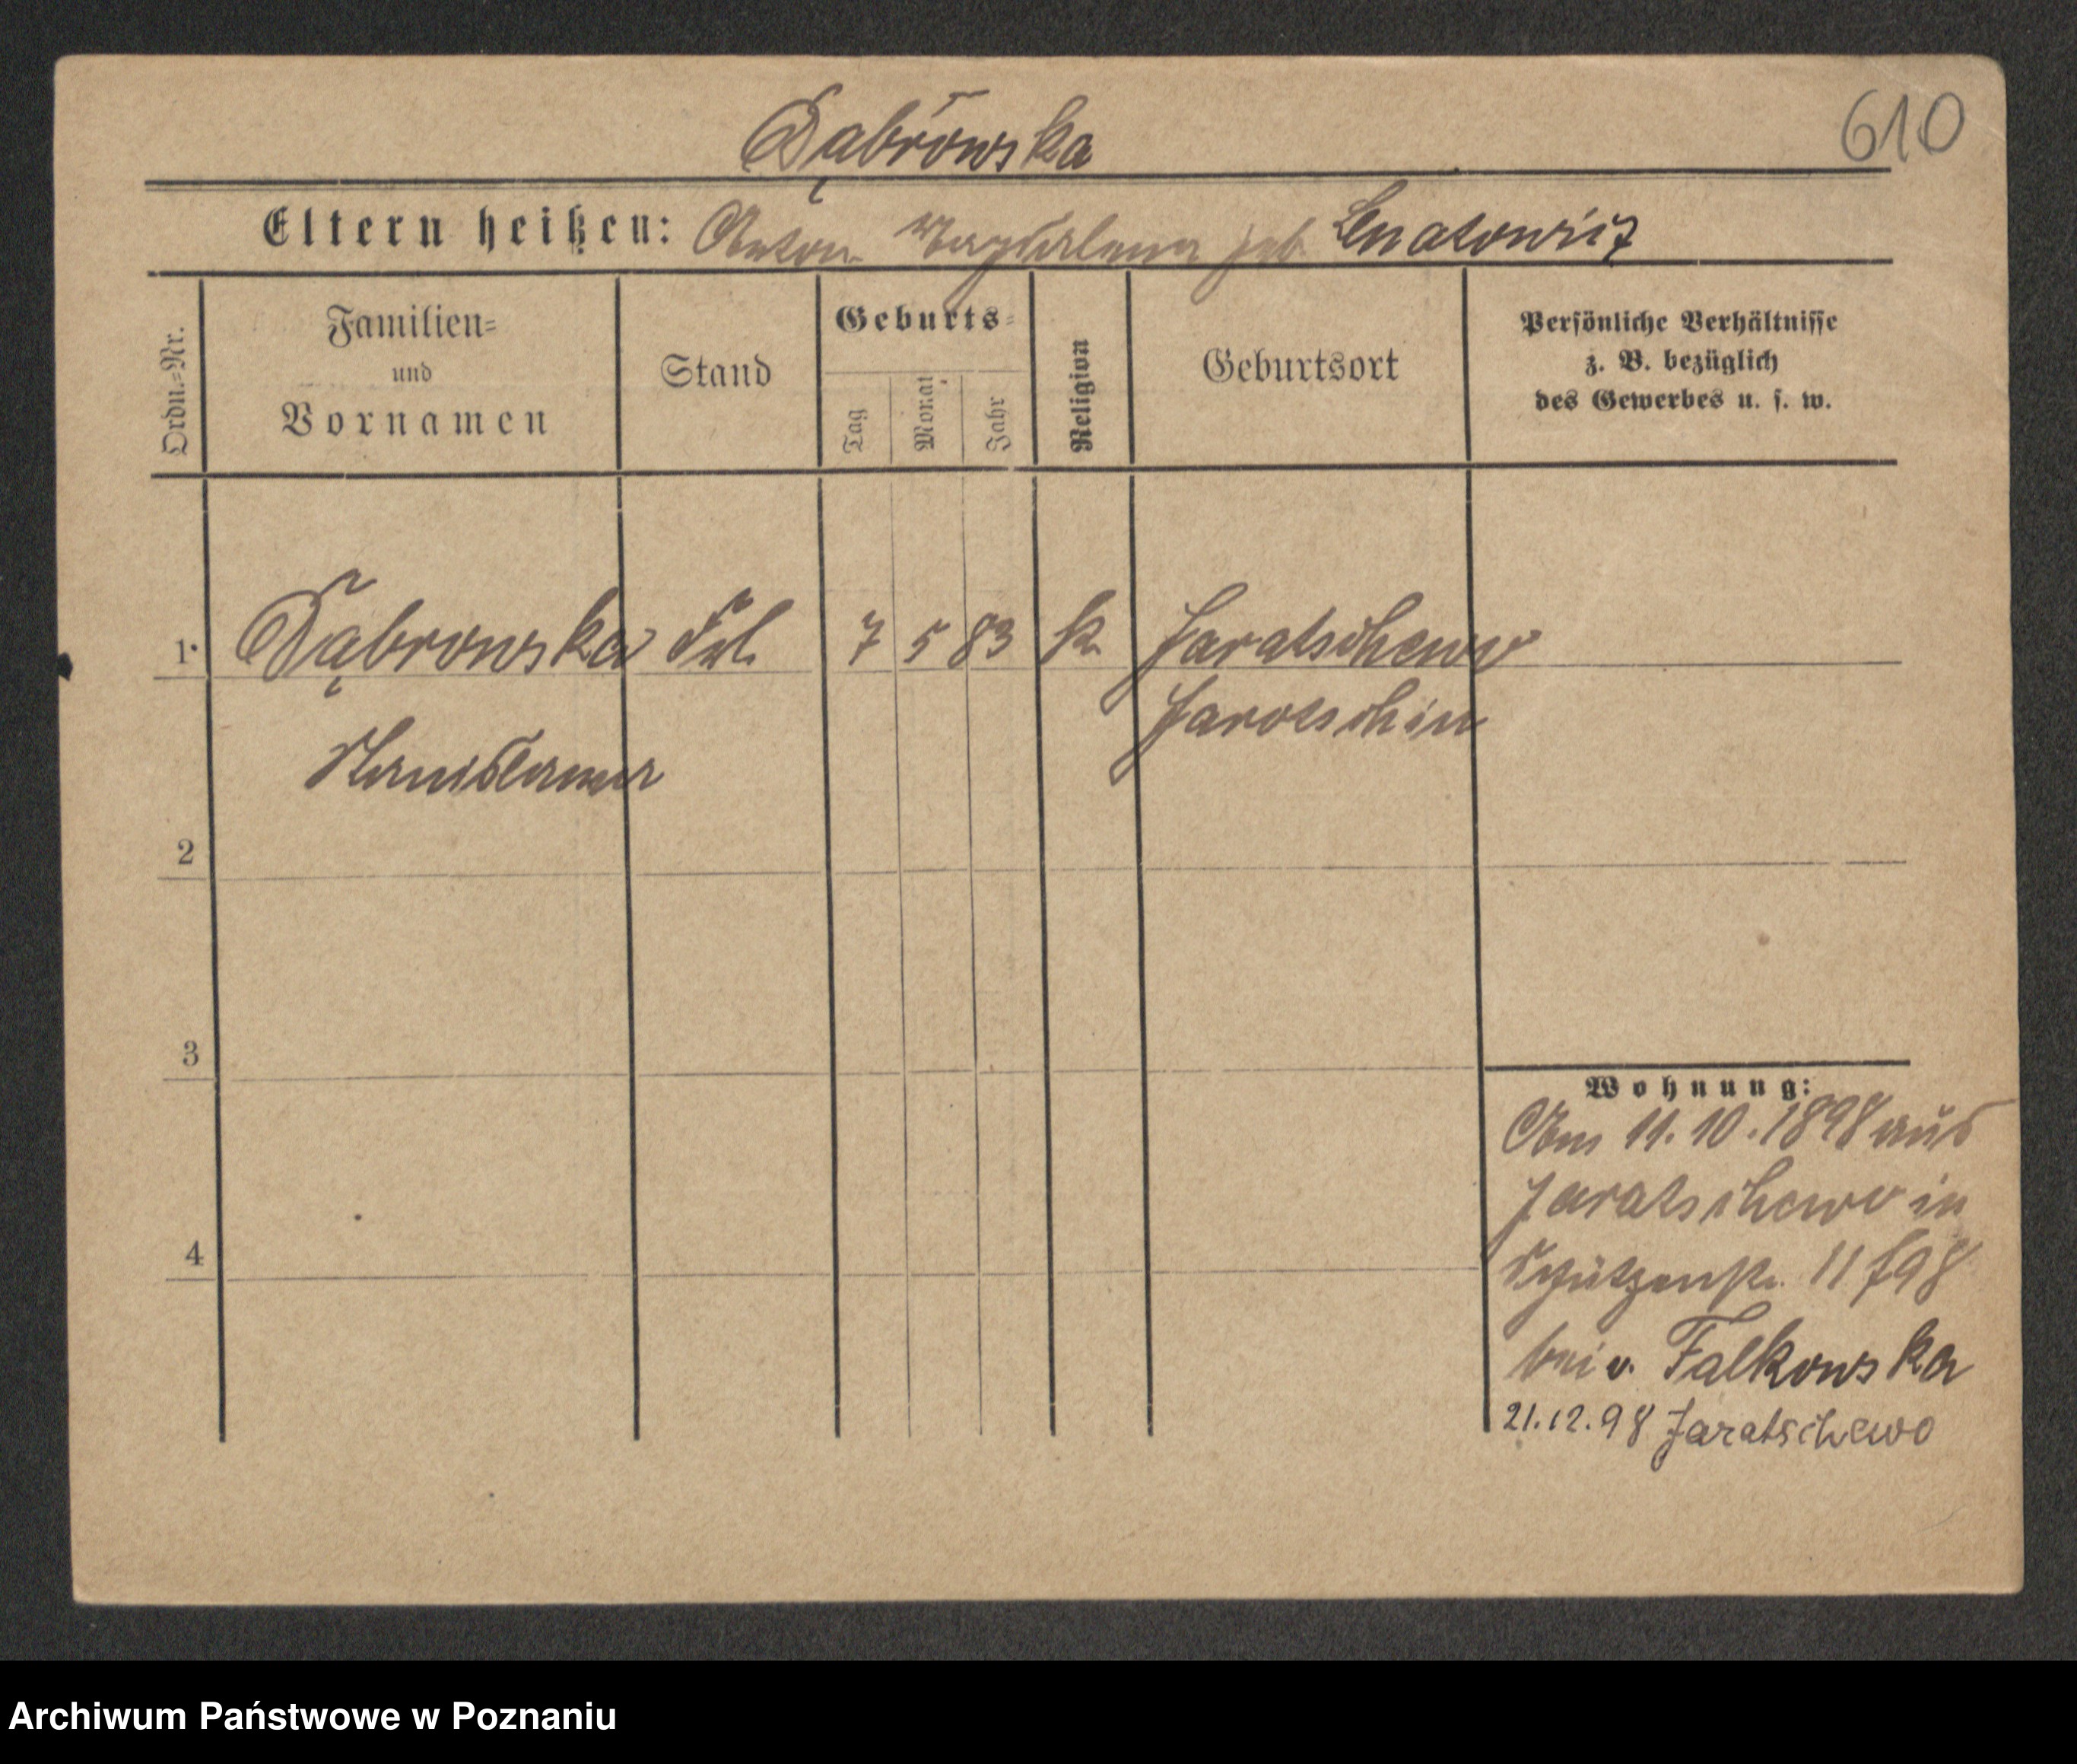 Dąbrowska
610
Eltern heißen: Anton Magdalena geb. Lenatowicz
Ordn.=Nr.
Familien=
und
Vornamen
Stand
Geburts=
Tag
Monat
Jahr
Religion
Geburtsort
Persönliche Verhältnisse
z. B. bezüglich
des Gewerbes u. s. w.
1 Dąbrowska Frl. 7 5 83 k. Jaratschewo
Jarotschin
Stanislawa
2
3
4
Wohnung:
Am 11.10.1898 aus
Jaratschewo in
Schützenstr. 11 /98
bei v. Falkowska
21.12.98 Jaratschewo
Archiwum Państwowe w Poznaniu